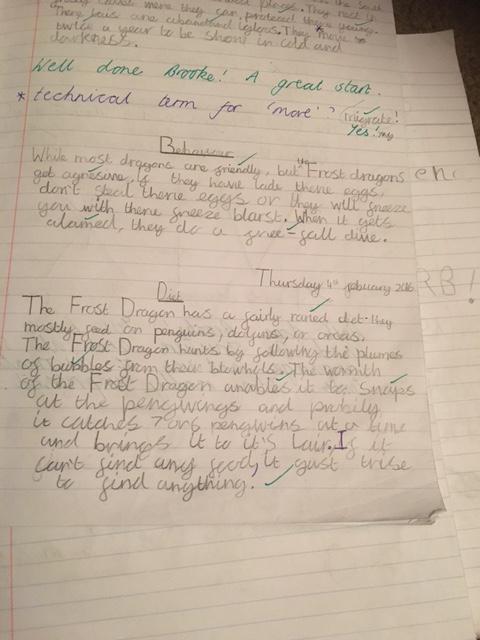 There lairs are abandond igloos. They move
twice a year to be show in cold and
darkness.
Well done Brooke! A great start.
* technical term for 'move'? migrate!
Yes!
Behaviour
While most dragons are friendly, but the Frost dragons
get agresive, if they have lade there eggs,
don't steal there eggs or they will freeze
you with there freeze blarst. When it gets
alarmed, they do a free-fall dive.
Thursday 4th febuary 2016
Diet
The Frost Dragon has a fairly raried diet. they
mostly feed on penguins, dolfins, or orcas.
The Frost Dragon hunts by following the plumes
of bubbles from their blowhols. The wormth
of the Frost Dragon anables it to snaps
at the pengwings and
it catches 7 or 6 pengwins at a time
and brings it to it's lair. If it
can't find any food, it gust
to find anything.
en.
RB!